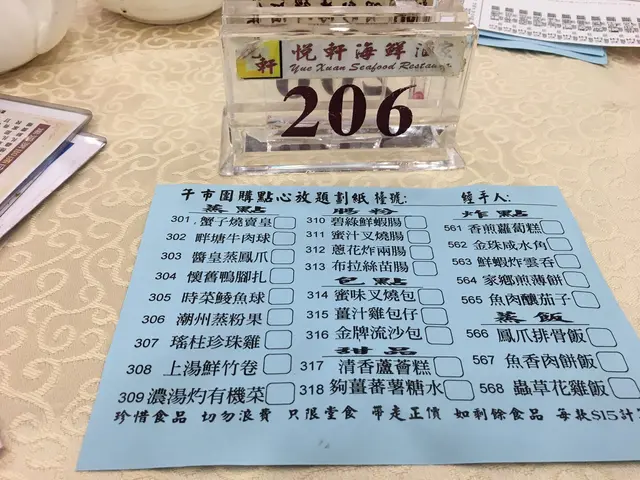 悅軒
悅軒海鮮酒家
Yue Xuan Seafood Restaurant
206
午市團購點心放題劃紙 檯號: 經手人:
蒸點
301 蟹子燒賣皇
302 畔塘牛肉球
303 醬皇蒸鳳爪
304 懷舊鴨腳扎
305 時菜鯪魚球
306 潮州蒸粉果
307 瑤柱珍珠雞
308 上湯鮮竹卷
309 濃湯灼有機菜
腸粉
310 碧綠鮮蝦腸
311 蜜汁叉燒腸
312 蔥花炸兩腸
313 布拉絲苗腸
包點
314 蜜味叉燒包
315 薑汁雞包仔
316 金牌流沙包
甜品
317 清香蘆薈糕
318 夠薑番薯糖水
炸點
561 香煎蘿蔔糕
562 金珠咸水角
563 鮮蝦炸雲吞
564 家鄉煎薄餅
565 魚肉釀茄子
蒸飯
566 鳳爪排骨飯
567 魚香肉餅飯
568 蟲草花雞飯
珍惜食品 切勿浪費 只限堂食 帶走正價 如剩餘食品 每兩$15計